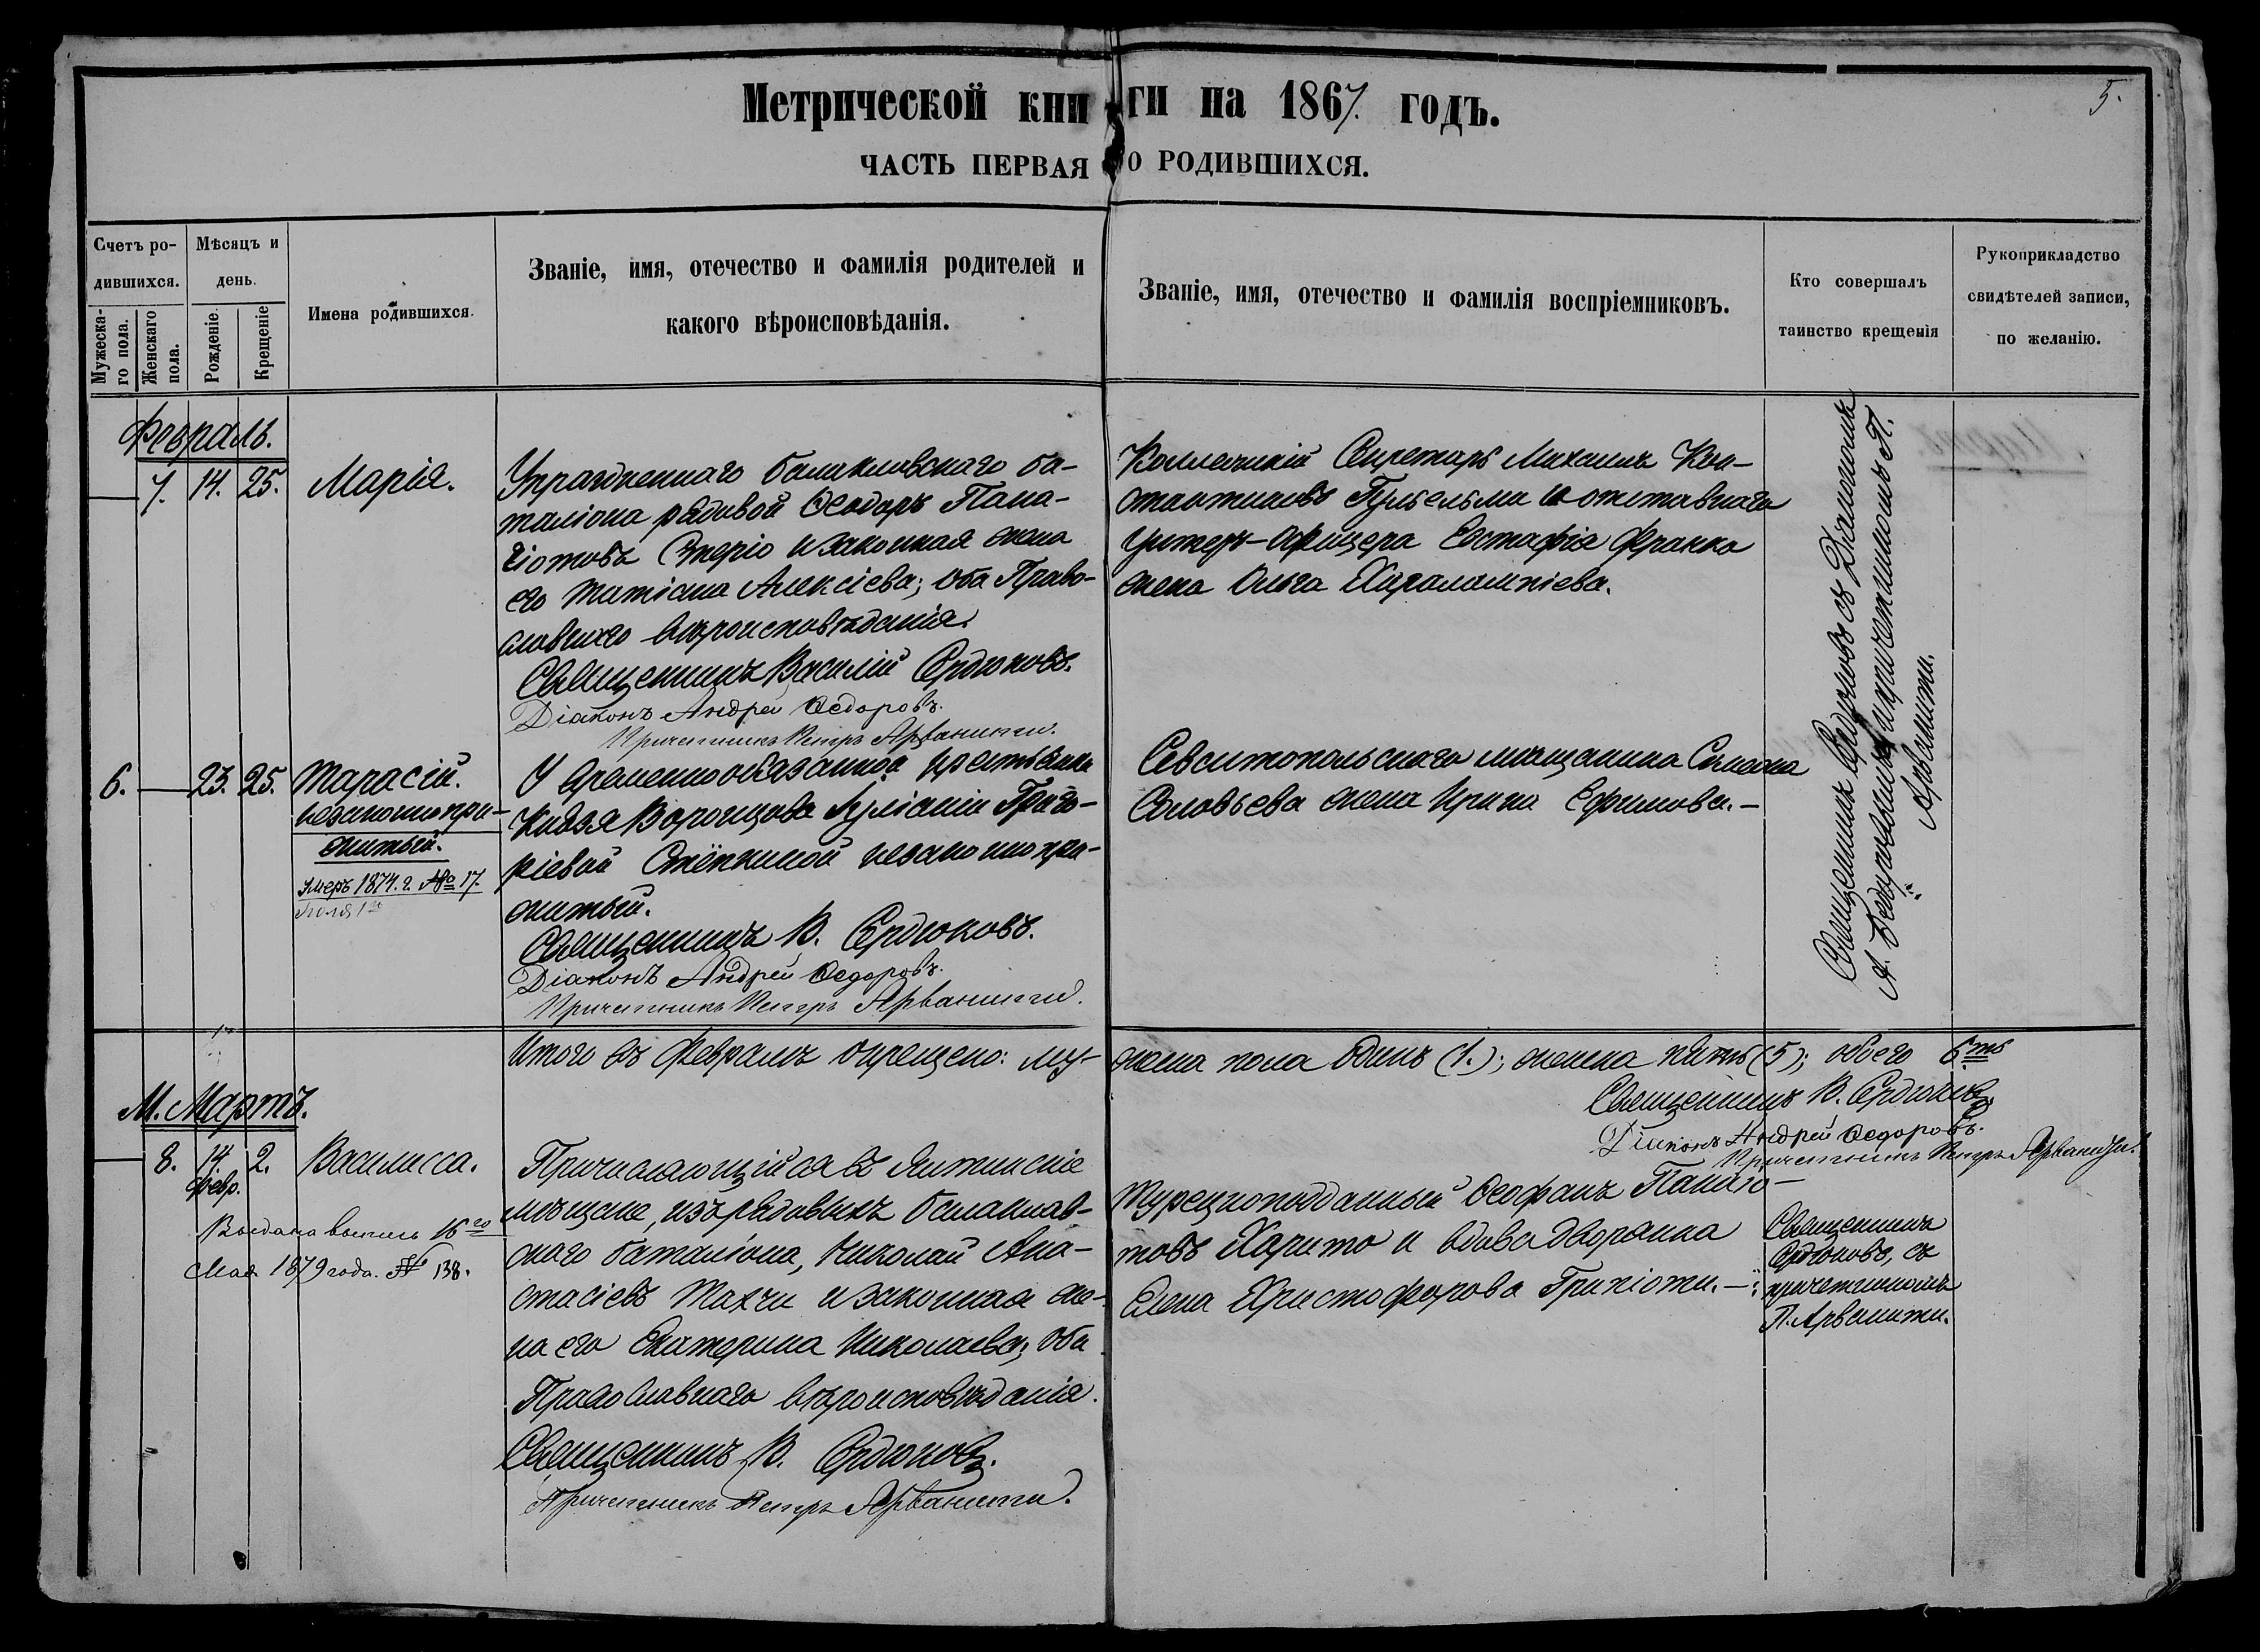 Метрической книги на 1867. годъ.
5.
ЧАСТЬ ПЕРВАЯ О РОДИВШИХСЯ.
Счетъ ро-
дившихся.
Мужеска-
го пола.
Женскаго
пола.
Мѣсяцъ и
день.
Рожденіе.
Крещеніе
Имена родившихся.
Званіе, имя, отечество и фамилія родителей и
какого вѣроисповѣданія.
Званіе, имя, отечество и фамилія воспріемниковъ.
Кто совершалъ
таинство крещенія
Рукоприкладство
свидѣтелей записи,
по желанію.
Февраль.
7. 14. 25. Марія.
Упраздненнаго балаклавскаго ба-
таліона рядовой Ѳеодоръ Пана-
гіотовъ Сперіо и законная жена
его Татіана Алексіева; оба Право-
славнаго вѣроисповѣданія.
Священникъ Василій Сердюковъ.
Діаконъ Андрей Ѳедоровъ.
Причетникъ Петръ Арванити.
Коллежскій Секретарь Михаилъ Кон-
стантиновъ и отставнаго
Унтеръ-Офицера Евстафія Франко
жена Ольга Харалампіева.
Священникъ Сердюковъ съ Діакономъ
А. Ѳедоровымъ и причетникомъ П.
Арванити.
6. 23. 25. Тарасій.
незаконнопри-
житый.
Умеръ 1874. г. № 17.
У временнообязанной крестьянки
Князя Воронцова Іуліаніи Григо-
ріевой Стёпкиной незаконнопри-
житый.
Священникъ В. Сердюковъ.
Діаконъ Андрей Ѳедоровъ.
Причетникъ Петръ Арванити.
Севастопольскаго мѣщанина Симеона
Соловьева жена Ирина Ефимова.-
Итого въ Февралѣ окрещено: му-
жеска пола одинъ (1.); женска пять (5); обоего 6.ть
Священникъ В. Сердюковъ
Діаконъ Андрей Ѳедоровъ.
Причетникъ Петръ Арванити.
М. Мартъ.
8. 14. 2. Василисса.
Февр.
Выдана выпись 16го
Мая 1879 года. № 138.
Причисляющійся въ Ялтинскіе
мѣщане, изъ рядовыхъ балаклав-
скаго баталіона, Николай Ана-
стасіевъ Тахчи и законная же-
на его Екатерина Николаева; оба
Православнаго вѣроисповѣданія.
Священникъ В. Сердюковъ.
Причетникъ Петръ Арванити.
Турецкоподданный Ѳеофанъ Панаіо-
товъ Харито и вдова дворянка
Елена Христофорова Грипіоти.-
Священникъ
Сердюковъ, съ
причетникомъ
П. Арванити.